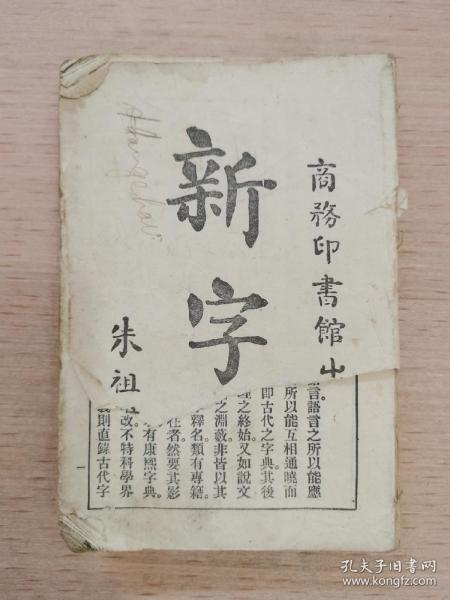 商務印書館出
新字
朱祖
言語言之所以能應
所以能互相通曉而
即古代之字典其後
理之終始又如說文
之淵藪非皆以其
字釋名類有專籍
任者然要其影
有康熙字典
改不特科學界
則直錄古代字
Hangchau
孔夫子旧书网
www.kongfz.com